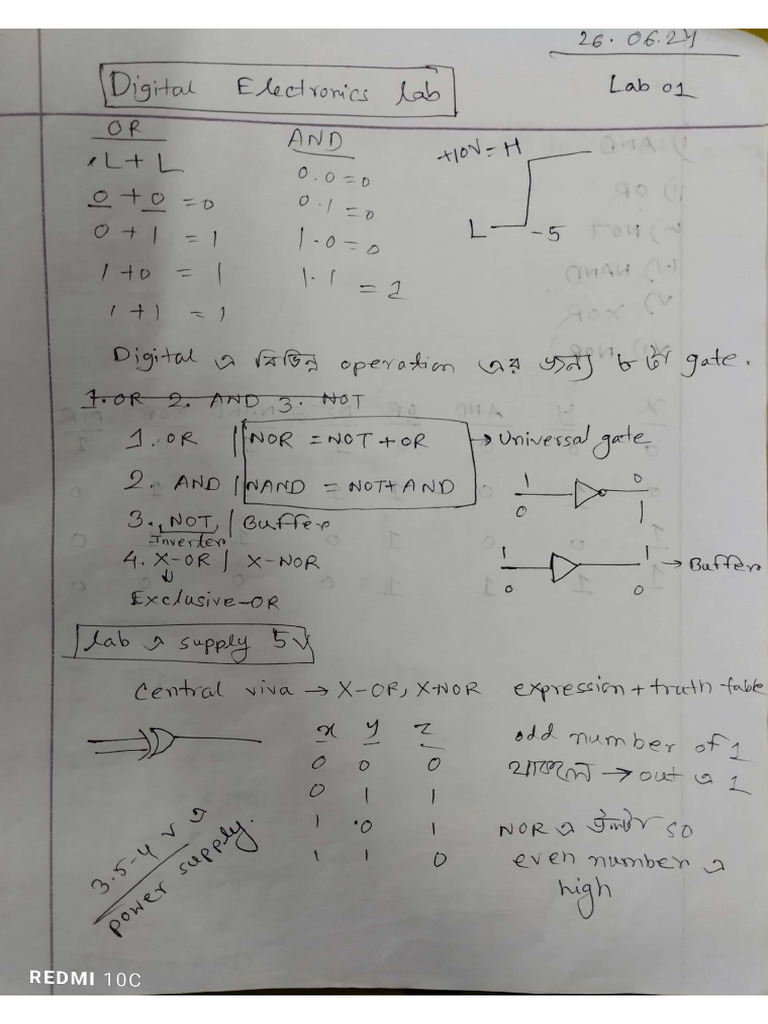 26.06.24
Digital Electronics lab
Lab 01
OR
L + L
0 + 0 = 0
0 + 1 = 1
1 + 0 = 1
1 + 1 = 1
AND
0.0 = 0
0.1 = 0
1.0 = 0
1.1 = 1
+10V = H
L -5
Digital এ বিভিন্ন operation এর জন্য ৮ টা gate.
1. OR 2. AND 3. NOT
1. OR | NOR = NOT + OR → Universal gate
2. AND | NAND = NOT + AND
1 0
0 1
3. NOT, | Buffer
Inverter
4. X-OR | X-NOR
Exclusive-OR
1 1 → Buffer
0 0
lab এ supply 5v
Central viva → X-OR, X-NOR expression + truth table
x y z
0 0 0
0 1 1
1 0 1
1 1 0
odd number of 1
থাকলে → out এ 1
NOR এ উল্টা so
even number এ
high
3.5-4 v এ
power supply.
REDMI 10C